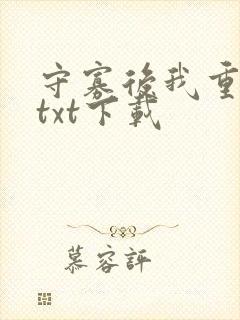 守寡後我重
txt下載
慕容評